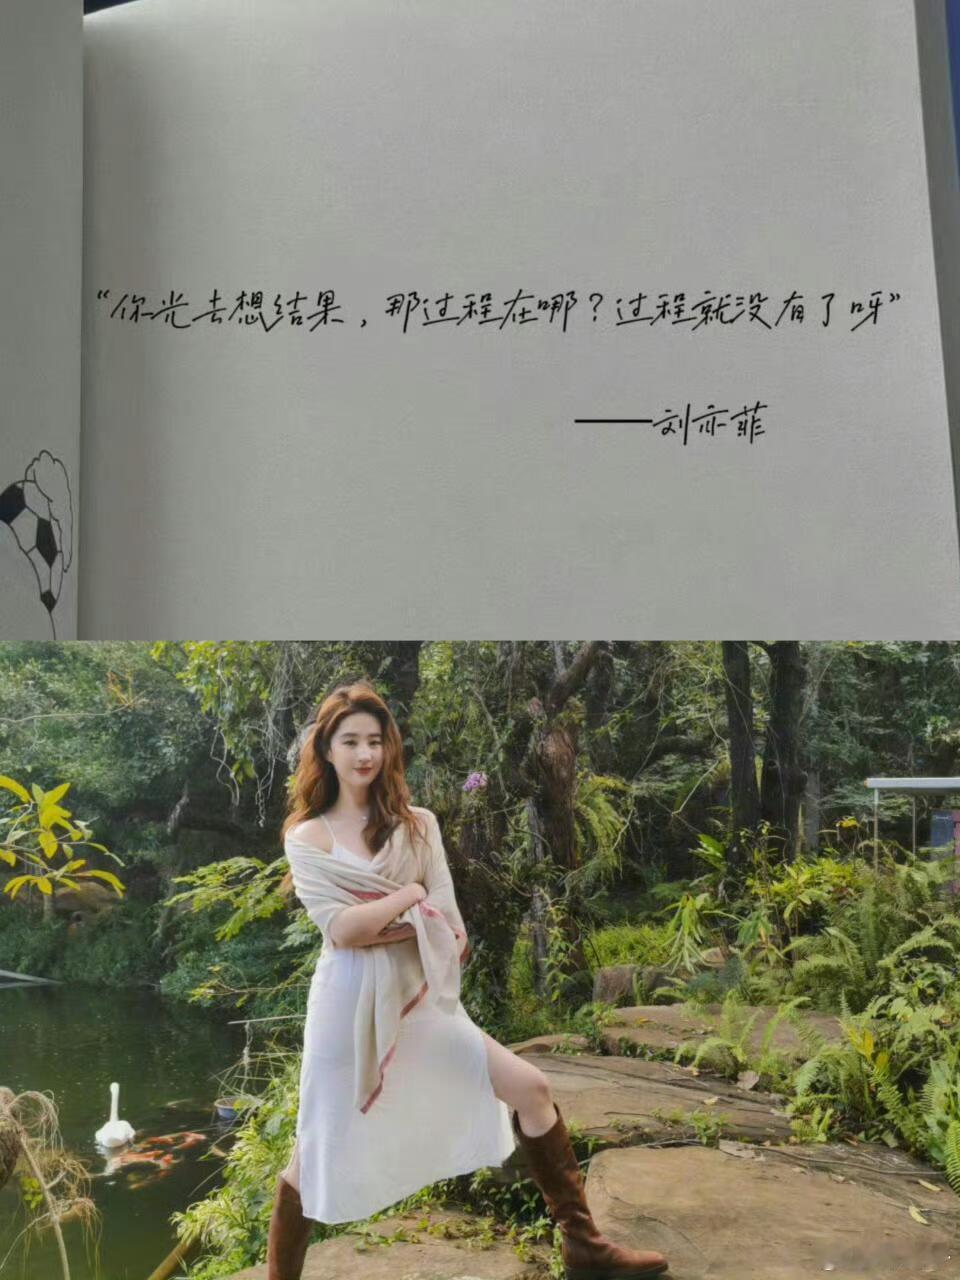 “你光去想结果，那过程在哪？过程就没有了呀”
——刘亦菲